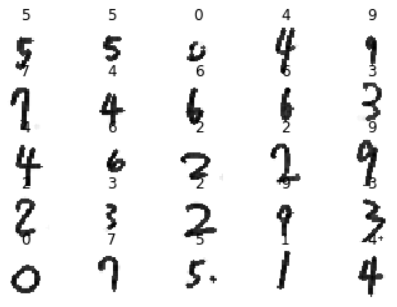 5 5 0 4 9
5 5 0 4 9
7 4 6 6 3
7 4 6 6 3
4 6 2 2 9
4 6 2 2 9
2 3 2 9 3
2 3 2 9 3
0 7 5 1 4
0 7 5 1 4